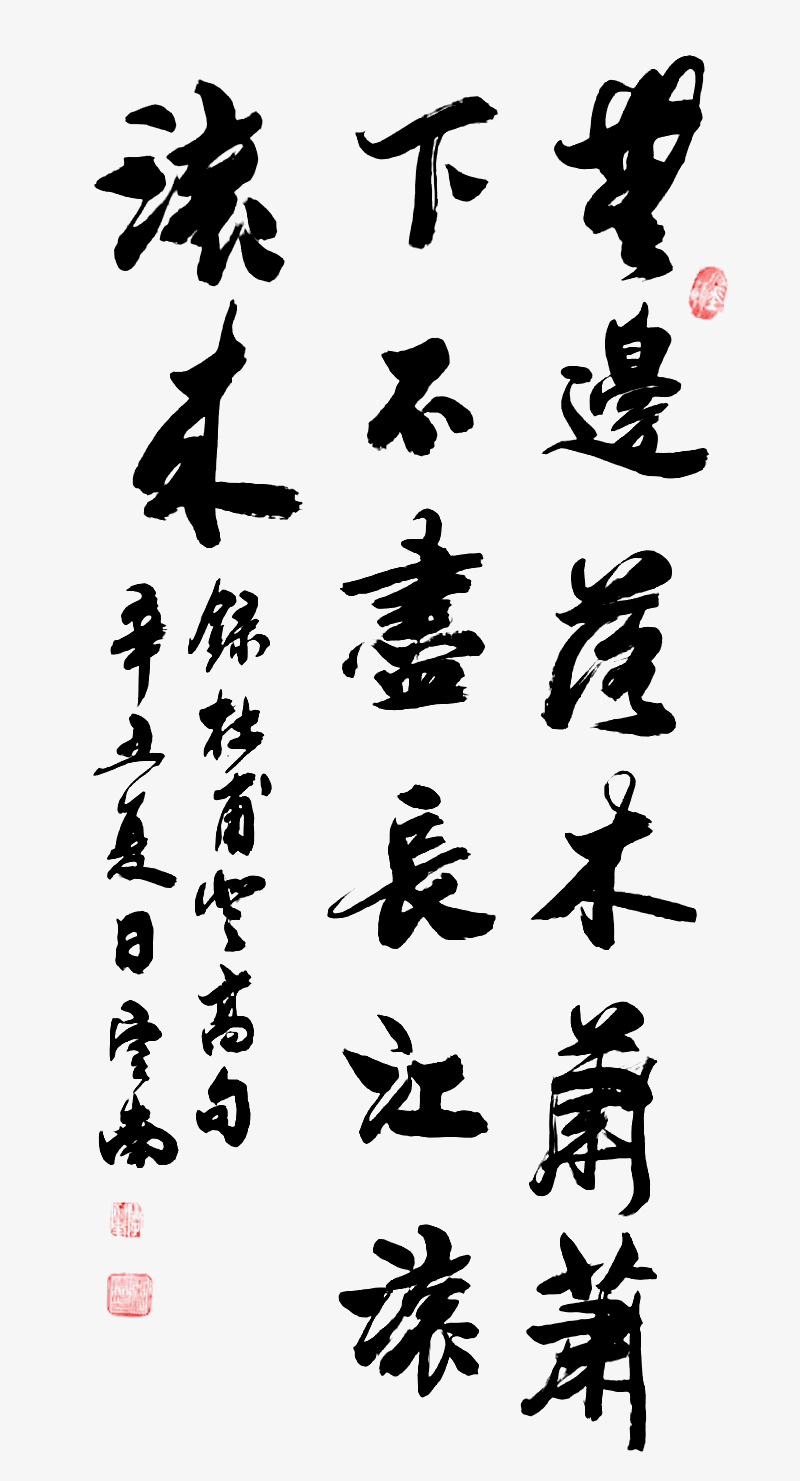 無邊落木蕭蕭
下不盡長江滚
滚来
錄杜甫登高句
辛丑夏日雲嵩